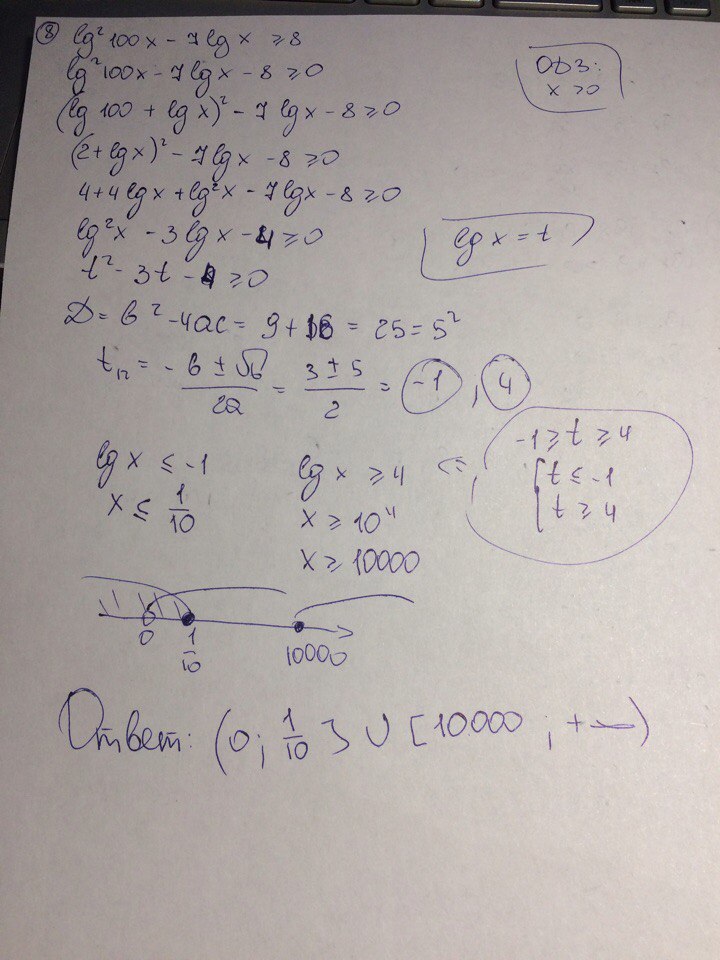 ⑧ lg²100x - 7lgx ≥ 8
lg²100x - 7lgx - 8 ≥ 0
ОДЗ:
x > 0
(lg100 + lgx)² - 7lgx - 8 ≥ 0
(2+lgx)² - 7lgx - 8 ≥ 0
4+4lgx+lg²x - 7lgx - 8 ≥ 0
lg²x - 3lgx - 4 ≥ 0
lgx = t
t² - 3t - 4 ≥ 0
D = b² - 4ac = 9 + 16 = 25 = 5²
t₁,₂ = (-b ± √D)/2a = (3 ± 5)/2 = -1, 4
-1 ≥ t ≥ 4
t ≤ -1
t ≥ 4
lgx ≤ -1
x ≤ 1/10
lgx ≥ 4 <=
x ≥ 10⁴
x ≥ 10000
0 1/10 10000
Ответ: (0; 1/10] ∪ [10000; +∞)